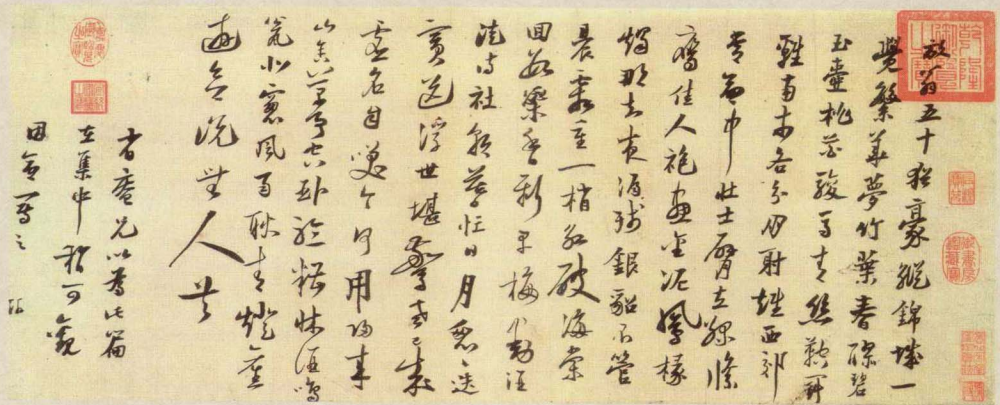 放翁五十猶豪縱錦城一
覺繁華夢竹葉春醪碧
玉壺桃花駿馬青絲鞚鬪
雞南市各分朋射雉西郊
常命中壯士臂立綠絛
鷹佳人袍畫金泥鳳椽
燭那知夜漏殘銀貂不管
晨霜重一梢紅破海棠
回數蕊香新早梅動酒
徒詩社朝暮忙日月匆匆迭
賓送浮世堪驚老已成
虛名自笑今何用歸來
山舍萬事空卧聽糟牀酒鳴
甕北窗風雨耿青燈舊
遊欲說無人共
省庵兄以為此篇
在集中稍可觀
因命寫之 游